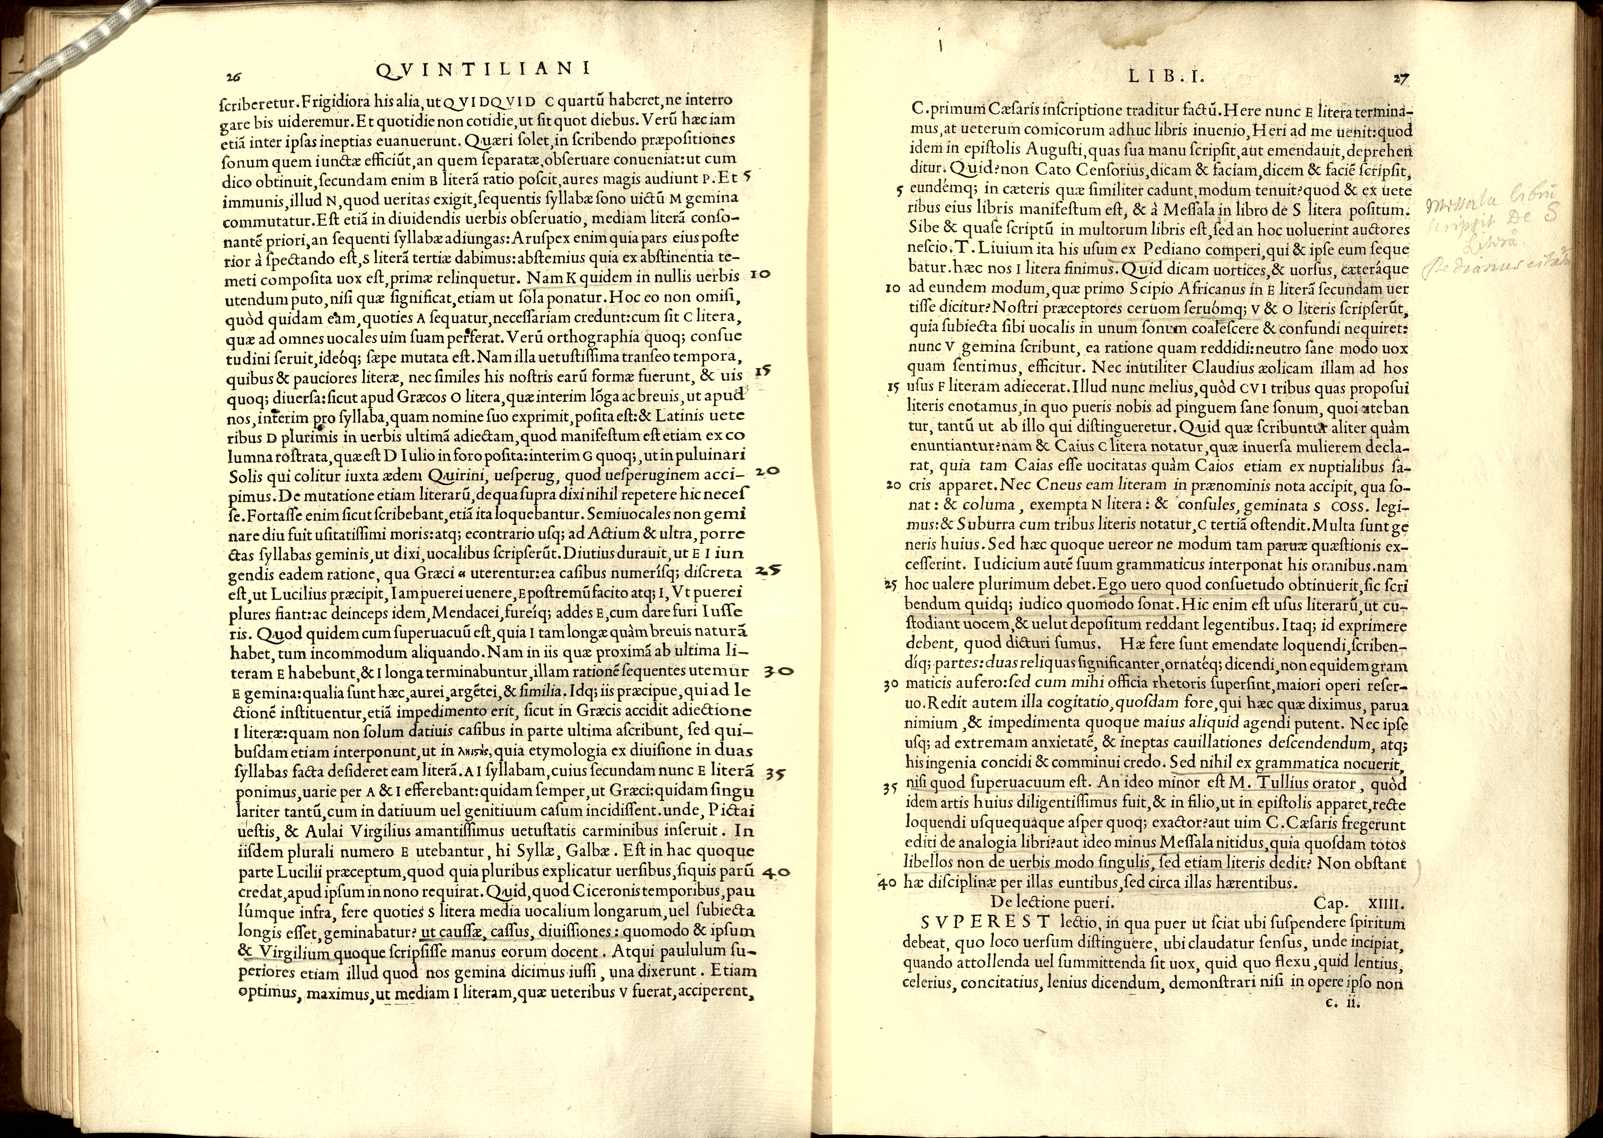 26 QVINTILIANI
ſcriberetur. Frigidiora his alia, ut QVIDQVID C quartū haberet, ne interro
gare bis uideremur. Et quotidie non cotidie, ut ſit quot diebus. Verū hæc iam
etiā inter ipſas ineptias euanuerunt. Quæri ſolet, in ſcribendo præpoſitiones
ſonum quem iunctæ efficiūt, an quem ſeparatæ, obſeruare conueniat: ut cum
dico obtinuit, ſecundam enim B literā ratio poſcit, aures magis audiunt P. Et 5
immunis, illud N, quod ueritas exigit, ſequentis ſyllabæ ſono uictū M gemina
commutatur. Eſt etiā in diuidendis uerbis obſeruatio, mediam literā conſo-
nantē priori, an ſequenti ſyllabæ adiungas: Aruſpex enim quia pars eius poſte
rior à ſpectando eſt, S literā tertiæ dabimus: abſtemius quia ex abſtinentia te-
meti compoſita uox eſt, primæ relinquetur. Nam K quidem in nullis uerbis 10
utendum puto, niſi quæ ſignificat, etiam ut ſola ponatur. Hoc eo non omiſi,
quòd quidam eam, quoties A ſequatur, neceſſariam credunt: cum ſit C litera,
quæ ad omnes uocales uim ſuam perferat. Verū orthographia quoq; conſue
tudini ſeruit, ideóq; ſæpe mutata eſt. Nam illa uetuſtiſſima tranſeo tempora,
quibus & pauciores literæ, nec ſimiles his noſtris earū formæ fuerunt, & uis 15
quoq; diuerſa: ſicut apud Græcos O litera, quæ interim lōga ac breuis, ut apud
nos, interim pro ſyllaba, quam nomine ſuo exprimit, poſita eſt: & Latinis uete
ribus D plurimis in uerbis ultimā adiectam, quod manifeſtum eſt etiam ex co
lumna roſtrata, quæ eſt D Iulio in foro poſita: interim G quoq;, ut in puluinari
Solis qui colitur iuxta ædem Quirini, ueſperug, quod ueſperuginem acci- 20
pimus. De mutatione etiam literarū, de qua ſupra dixi nihil repetere hic neceſ
ſe. Fortaſſe enim ſicut ſcribebant, etiā ita loquebantur. Semiuocales non gemi
nare diu fuit uſitatiſſimi moris: atq; econtrario uſq; ad Actium & ultra, porre
ctas ſyllabas geminis, ut dixi, uocalibus ſcripſerūt. Diutius durauit, ut E I iun
gendis eadem ratione, qua Græci ει uterentur: ea caſibus numeríſq; diſcreta 25
eſt, ut Lucilius præcipit, Iam puerei uenere, E poſtremū facito atq; I, Vt puerei
plures fiant: ac deinceps idem, Mendacei, fureíq; addes E, cum dare furi Iuſſe
ris. Quod quidem cum ſuperuacuū eſt, quia I tam longæ quàm breuis naturā
habet, tum incommodum aliquando. Nam in iis quæ proximā ab ultima li-
teram E habebunt, & I longa terminabuntur, illam rationē ſequentes utemur 30
E gemina: qualia ſunt hæc, aurei, argētei, & ſimilia. Idq; iis præcipue, qui ad le
ctionē inſtituentur, etiā impedimento erit, ſicut in Græcis accidit adiectione
I literæ: quam non ſolum datiuis caſibus in parte ultima aſcribunt, ſed qui-
buſdam etiam interponunt, ut in ΛΗΙΣΤΗΣ, quia etymologia ex diuiſione in duas
ſyllabas facta deſideret eam literā. A I ſyllabam, cuius ſecundam nunc E literā 35
ponimus, uarie per A & I efferebant: quidam ſemper, ut Græci: quidam ſingu
lariter tantū, cum in datiuum uel genitiuum caſum incidiſſent. unde, Pictai
ueſtis, & Aulai Virgilius amantiſſimus uetuſtatis carminibus inſeruit. In
iiſdem plurali numero E utebantur, hi Syllæ, Galbæ. Eſt in hac quoque
parte Lucilii præceptum, quod quia pluribus explicatur uerſibus, ſiquis parū 40
credat, apud ipſum in nono requirat. Quid, quod Ciceronis temporibus, pau
lúmque infra, fere quoties S litera media uocalium longarum, uel ſubiecta
longis eſſet, geminabatur? ut cauſſæ, caſſus, diuiſſiones: quomodo & ipſum
& Virgilium quoque ſcripſiſſe manus eorum docent. Atqui paululum ſu-
periores etiam illud quod nos gemina dicimus iuſſi, una dixerunt. Etiam
optimus, maximus, ut mediam I literam, quæ ueteribus V fuerat, acciperent,
LIB. I. 27
C. primum Cæſaris inſcriptione traditur factū. Here nunc E litera termina-
mus, at ueterum comicorum adhuc libris inuenio, Heri ad me uenit: quod
idem in epiſtolis Auguſti, quas ſua manu ſcripſit, aut emendauit, deprehen
ditur. Quid? non Cato Cenſorius, dicam & faciam, dicem & faciē ſcripſit,
5 eundémq; in cæteris quæ ſimiliter cadunt, modum tenuit? quod & ex uete
ribus eius libris manifeſtum eſt, & à Meſſala in libro de S litera poſitum.
Sibe & quaſe ſcriptū in multorum libris eſt, ſed an hoc uoluerint auctores
neſcio. T. Liuium ita his uſum ex Pediano comperi, qui & ipſe eum ſeque
batur. hæc nos I litera finimus. Quid dicam uortices, & uorſus, cæteráque
10 ad eundem modum, quæ primo Scipio Africanus in E literā ſecundam uer
tiſſe dicitur? Noſtri præceptores ceruom ſeruómq; V & O literis ſcripſerūt,
quia ſubiecta ſibi uocalis in unum ſonum coaleſcere & confundi nequiret:
nunc V gemina ſcribunt, ea ratione quam reddidi: neutro ſane modo uox
quam ſentimus, efficitur. Nec inutiliter Claudius æolicam illam ad hos
15 uſus F literam adiecerat. Illud nunc melius, quòd CVI tribus quas propoſui
literis enotamus, in quo pueris nobis ad pinguem ſane ſonum, quoi uteban
tur, tantū ut ab illo qui diſtingueretur. Quid quæ ſcribuntur aliter quàm
enuntiantur? nam & Caius C litera notatur, quæ inuerſa mulierem decla-
rat, quia tam Caias eſſe uocitatas quàm Caios etiam ex nuptialibus ſa-
20 cris apparet. Nec Cneus eam literam in prænominis nota accipit, qua ſo-
nat: & columa, exempta N litera: & conſules, geminata S COSS. legi-
mus: & Suburra cum tribus literis notatur, C tertiā oſtendit. Multa ſunt ge
neris huius. Sed hæc quoque uereor ne modum tam paruæ quæſtionis ex-
ceſſerint. Iudicium autē ſuum grammaticus interponat his omnibus. nam
25 hoc ualere plurimum debet. Ego uero quod conſuetudo obtinuerit, ſic ſcri
bendum quidq; iudico quomodo ſonat. Hic enim eſt uſus literarū, ut cu-
ſtodiant uocem, & uelut depoſitum reddant legentibus. Itaq; id exprimere
debent, quod dicturi ſumus. Hæ fere ſunt emendate loquendi, ſcriben-
díq; partes: duas reliquas ſignificanter, ornatéq; dicendi, non equidem gram
30 maticis aufero: ſed cum mihi officia rhetoris ſuperſint, maiori operi reſer-
uo. Redit autem illa cogitatio, quoſdam fore, qui hæc quæ diximus, parua
nimium, & impedimenta quoque maius aliquid agendi putent. Nec ipſe
uſq; ad extremam anxietatē, & ineptas cauillationes deſcendendum, atq;
his ingenia concidi & comminui credo. Sed nihil ex grammatica nocuerit,
35 niſi quod ſuperuacuum eſt. An ideo minor eſt M. Tullius orator, quòd
idem artis huius diligentiſſimus fuit, & in filio, ut in epiſtolis apparet, recte
loquendi uſquequaque aſper quoq; exactor? aut uim C. Cæſaris fregerunt
editi de analogia libri? aut ideo minus Meſſala nitidus, quia quoſdam totos
libellos non de uerbis modo ſingulis, ſed etiam literis dedit? Non obſtant
40 hæ diſciplinæ per illas euntibus, ſed circa illas hærentibus.
De lectione pueri. Cap. XIIII.
SVPEREST lectio, in qua puer ut ſciat ubi ſuſpendere ſpiritum
debeat, quo loco uerſum diſtinguere, ubi claudatur ſenſus, unde incipiat,
quando attollenda uel ſummittenda ſit uox, quid quo flexu, quid lentius,
celerius, concitatius, lenius dicendum, demonſtrari niſi in opere ipſo non
c. ii.
Messala librū
scripsit De S
Literâ
Pedianus